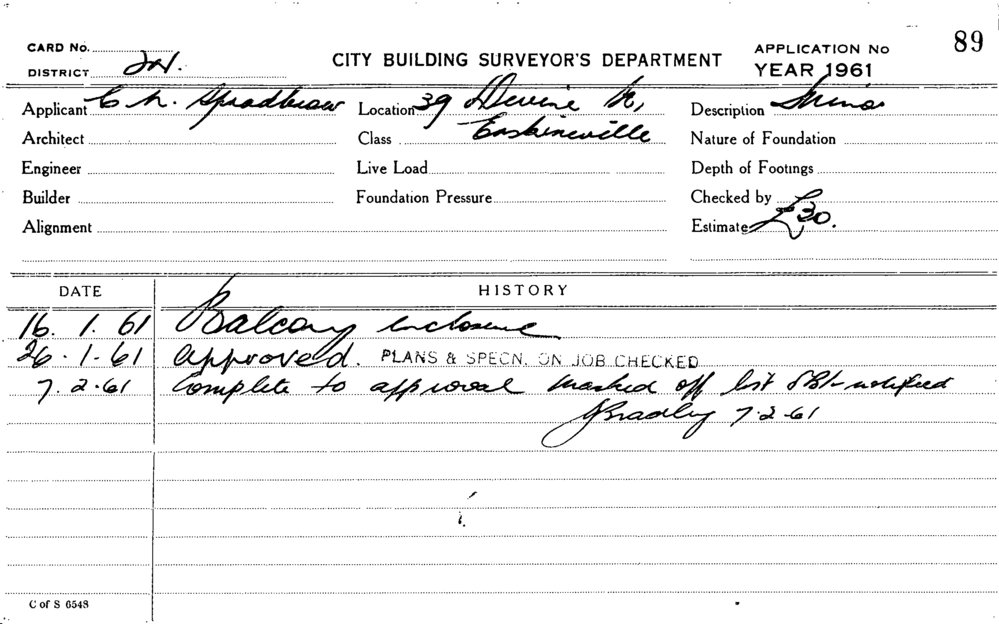 89
CARD No.
DISTRICT
CITY BUILDING SURVEYOR'S DEPARTMENT
APPLICATION No
YEAR 1961
Applicant C. N. Spradbrow Location 39 Devine St, Description Minor
Architect Class Erskineville Nature of Foundation
Engineer Live Load Depth of Footings
Builder Foundation Pressure Checked by
Alignment Estimate £30.
DATE HISTORY
16. 1. 61 Balcony enclosure
26. 1. 61 approved. PLANS & SPECN. ON JOB CHECKED
7. 2. 61 Complete to approval marked off list notified
Bradley 7.2.61
C of S 6548